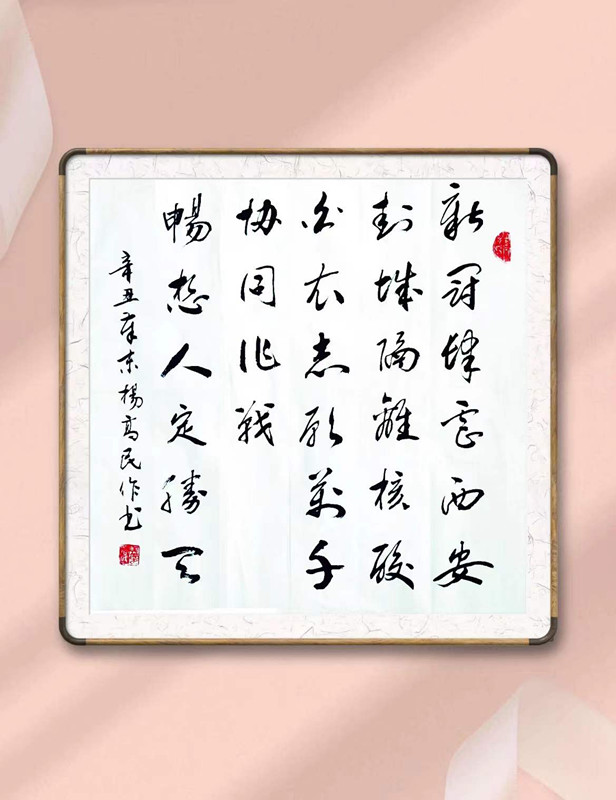 新冠肆虐西安
封城隔離核酸
白衣志願萬千
协同作戰
暢想人定勝天
辛丑年末楊高民作书